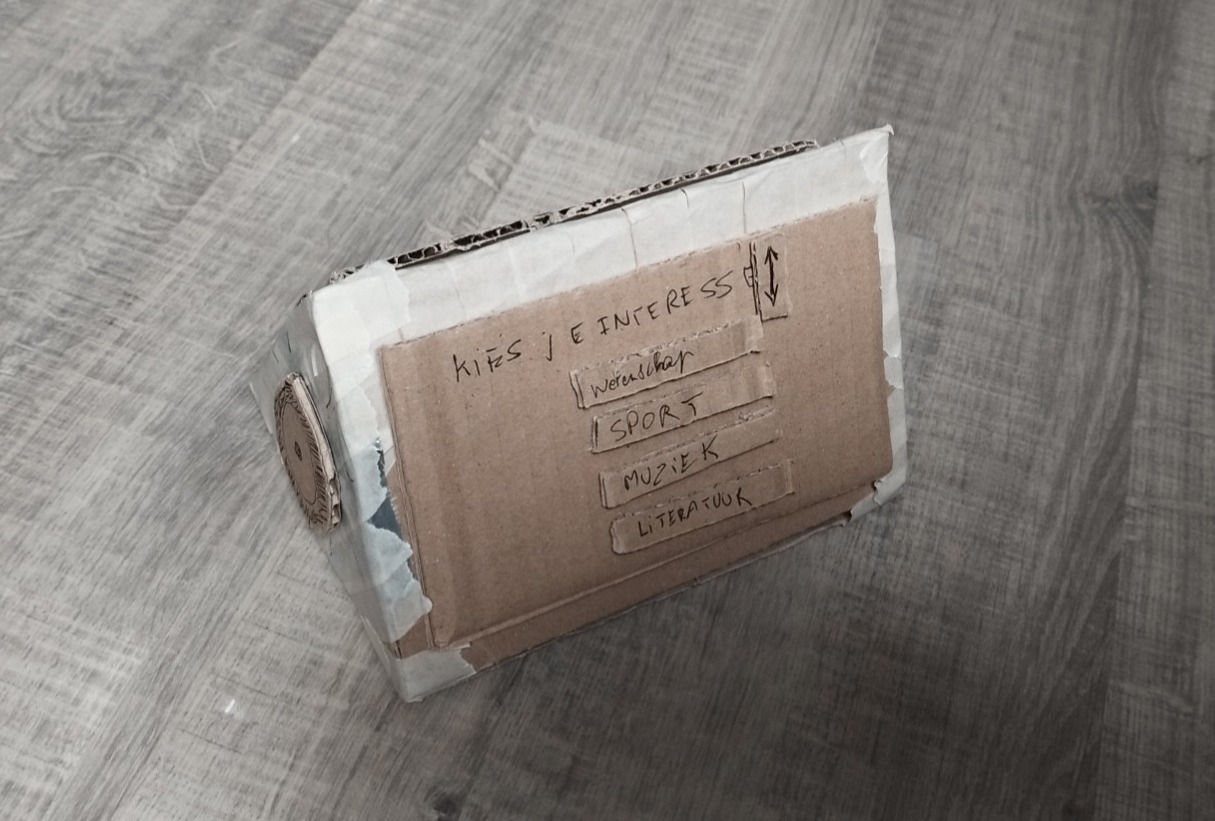 KIES JE INTERESSE
Wetenschap
SPORT
MUZIEK
LITERATUUR